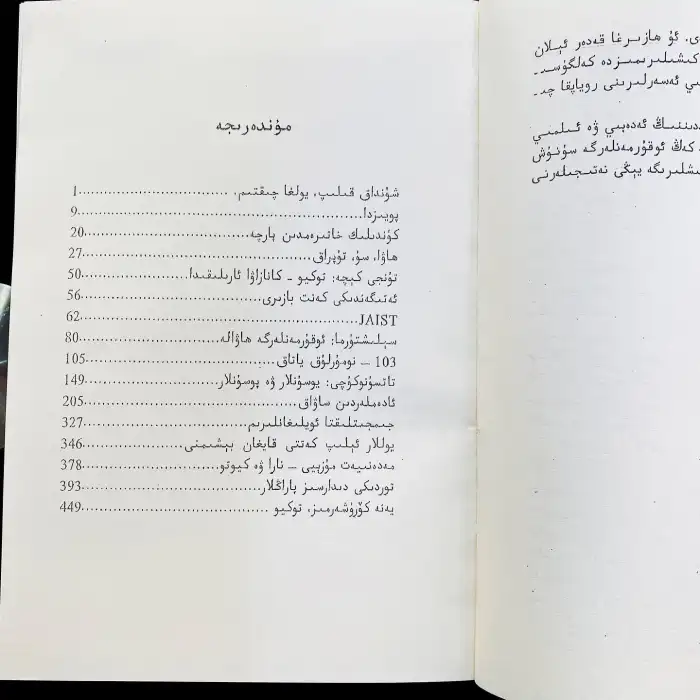 مۇندەرىجە
شۇنداق قىلىپ، يولغا چىقتىم. ........................1
پويىزدا........................9
كۈندىلىك خاتىرەمدىن پارچە........................20
ھاۋا، سۇ، تۇپراق........................27
تۇنجى كېچە: توكيو - كانازاۋا ئارىلىقىدا........................50
ئەتىگەندىكى كەنت بازىرى........................56
JAIST........................62
سېلىشتۇرما: ئوقۇرمەنلەرگە ھاۋالە........................80
103 – نومۇرلۇق ياتاق........................105
تاتسۇنوكۇچى: يوسۇنلار ۋە پوسۇنلار........................149
ئادەملەردىن ساۋاق........................205
جىمجىتلىقتا ئويلىغانلىرىم........................327
يوللار ئېلىپ كەتتى قايغان بېشىمنى........................346
مەدەنىيەت مۇزېيى – نارا ۋە كيوتو........................378
توردىكى دىدارسىز پاراڭلار........................393
يەنە كۆرۈشەرمىز، توكيو........................449
ى. ئۇ ھازىرغا قەدەر ئېلان
كىشىلىرىمىزدە كەلگۈسىـ
ىي ئەسەرلىرىنى روياپقا چىـ
دىننىڭ ئەدەبىي ۋە ئىلمىي
كەڭ ئوقۇرمەنلەرگە سۇنۇش
ىشلىرىگە يېڭى نەتىجىلەرنى